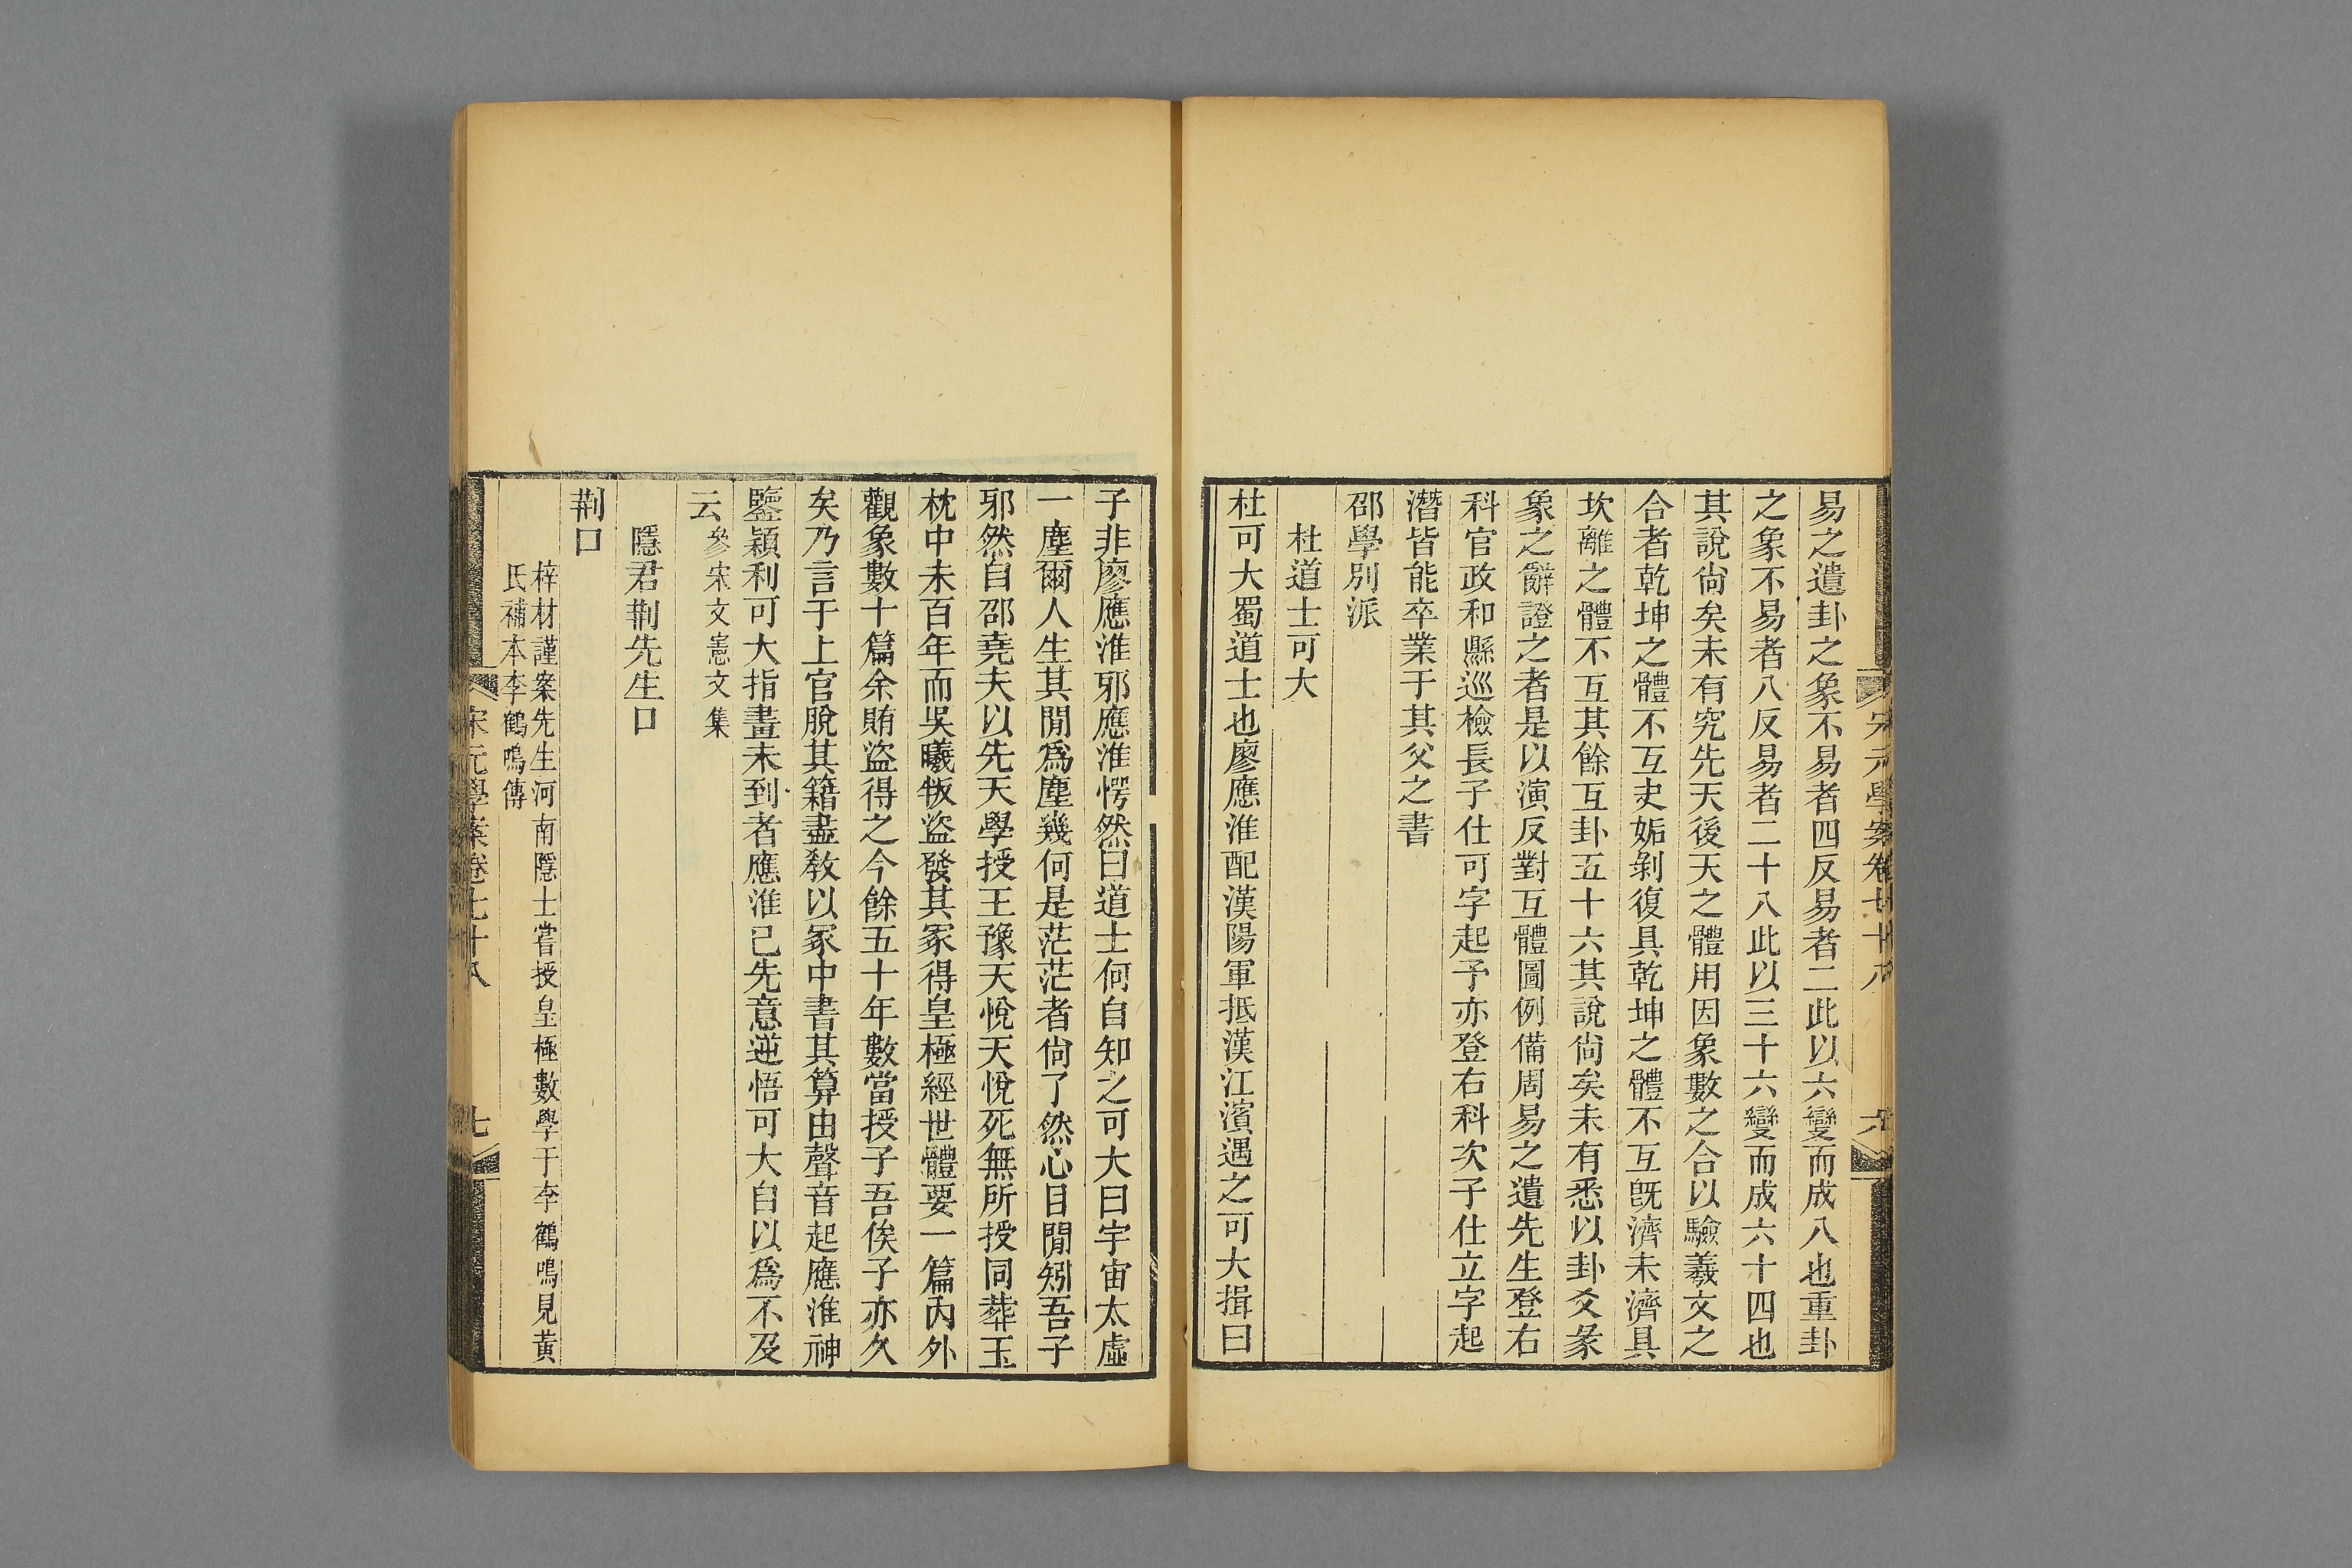 宋元學案卷七十八
六
易之遺卦之象不易者四反易者二此以六變而成八也重卦
之象不易者八反易者二十八此以三十六變而成六十四也
其說尙矣未有究先天後天之體用因象數之合以驗羲文之
合者乾坤之體不互夬姤剝復具乾坤之體不互旣濟未濟具
坎離之體不互其餘互卦五十六其說尙矣未有悉以卦爻彖
象之辭證之者是以演反對互體圖例備周易之遺先生登右
科官政和縣巡檢長子仕可字起予亦登右科次子仕立字起
潛皆能卒業于其父之書
邵學別派
杜道士可大
杜可大蜀道士也廖應淮配漢陽軍抵漢江濱遇之可大揖曰
子非廖應淮邪應淮愕然曰道士何自知之可大曰宇宙太虛
一塵爾人生其閒爲塵幾何是茫茫者尙了然心目閒矧吾子
邪然自邵堯夫以先天學授王豫天悅天悅死無所授同葬玉
枕中未百年而吳曦叛盜發其冢得皇極經世體要一篇內外
觀象數十篇余賄盜得之今餘五十年數當授子吾俟子亦久
矣乃言于上官脫其籍盡敎以冢中書其算由聲音起應淮神
鑒穎利可大指畫未到者應淮已先意逆悟可大自以爲不及
云參宋文憲文集
隱君荆先生口
荆口
梓材謹案先生河南隱士嘗授皇極數學于李鶴鳴見黃
氏補本李鶴鳴傳
宋元學案卷七十八
七